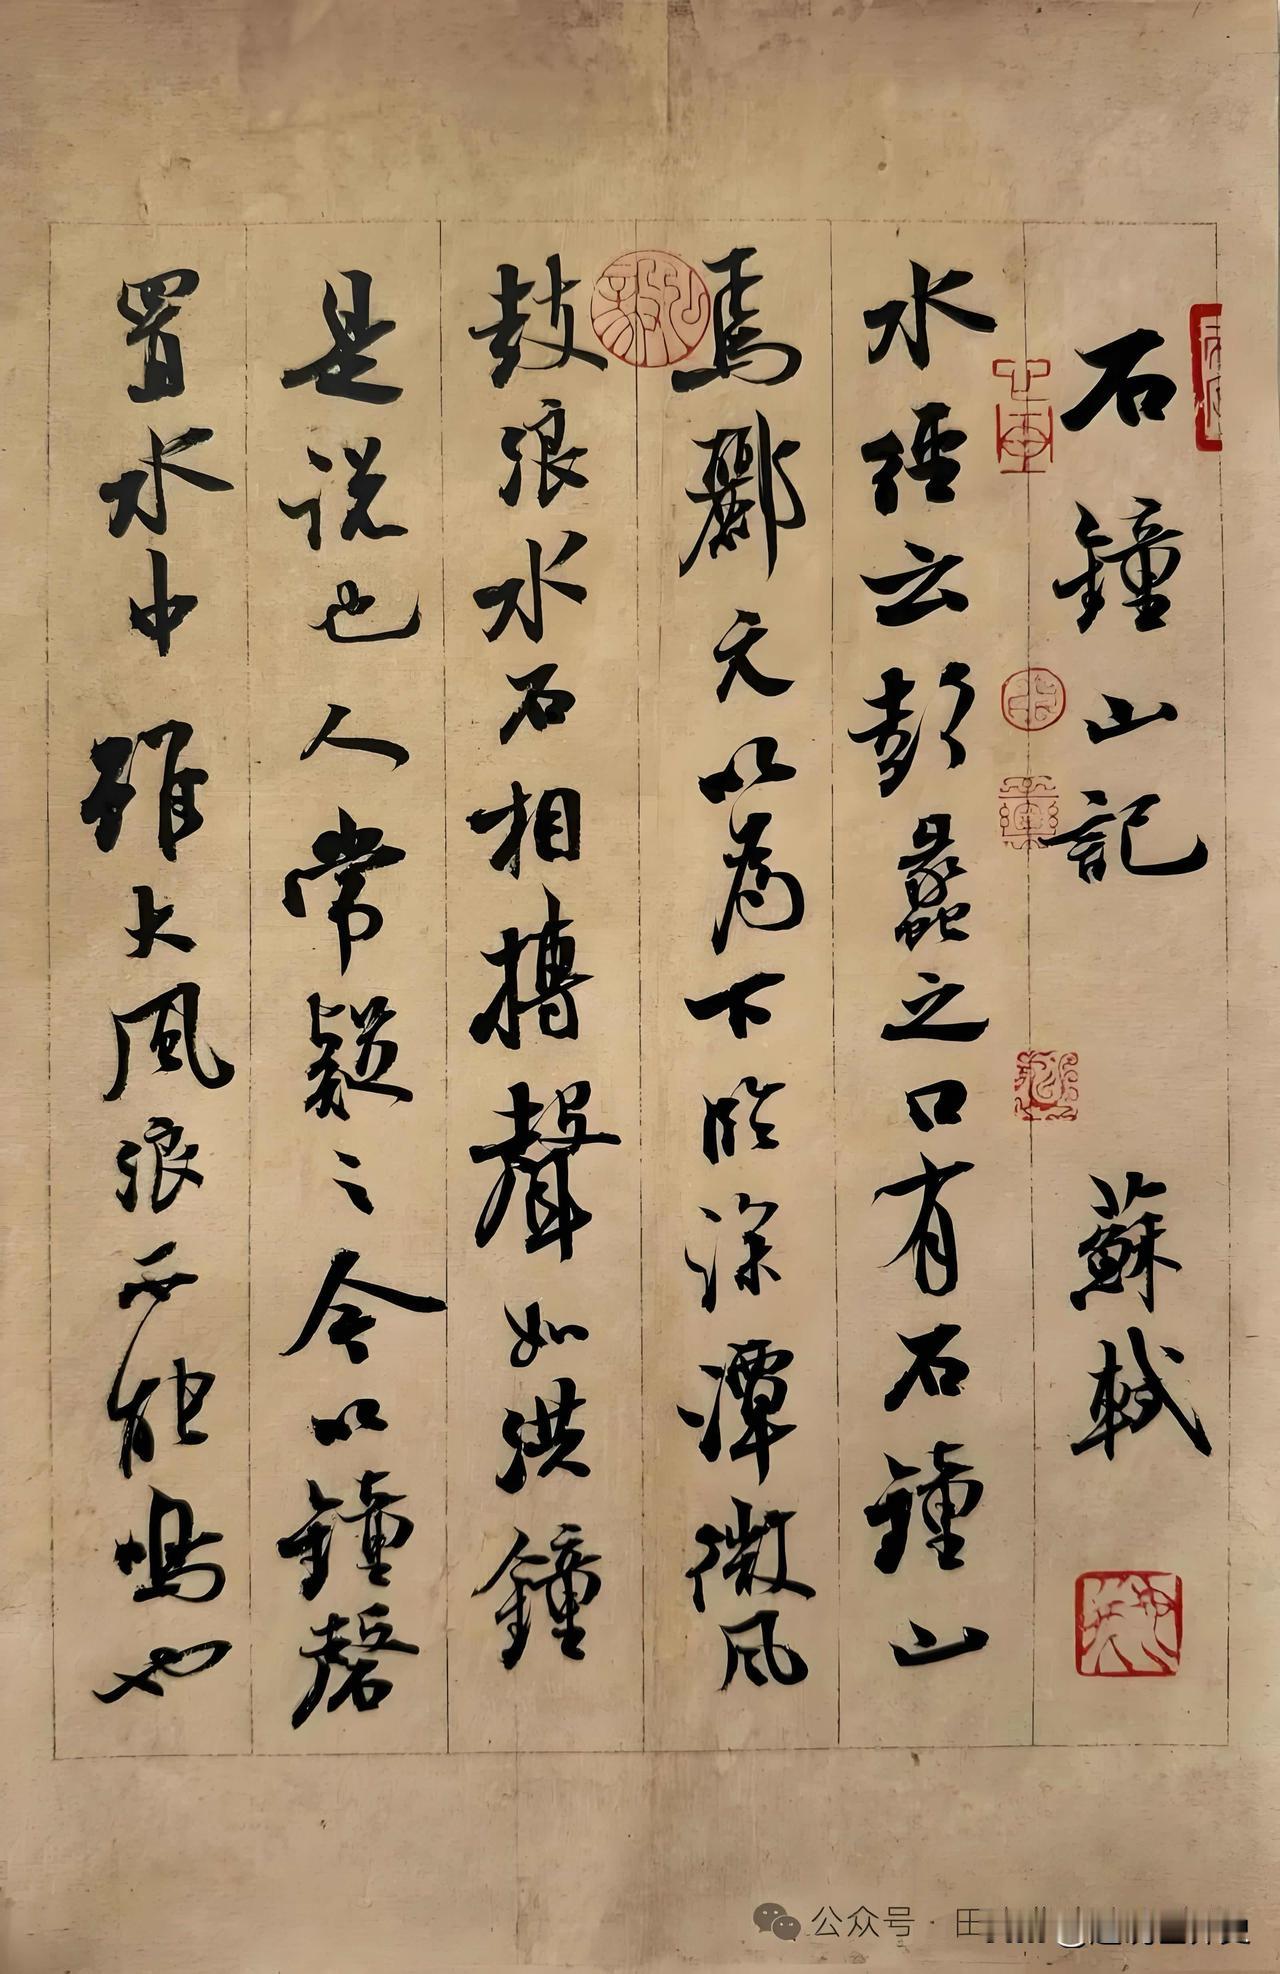 石鐘山記 蘇軾
水經云彭蠡之口有石鐘山
焉酈元以為下臨深潭微風
鼓浪水石相搏聲如洪鐘
是说也人常疑之今以鐘磬
置水中雖大風浪不能鳴也
公众号·田